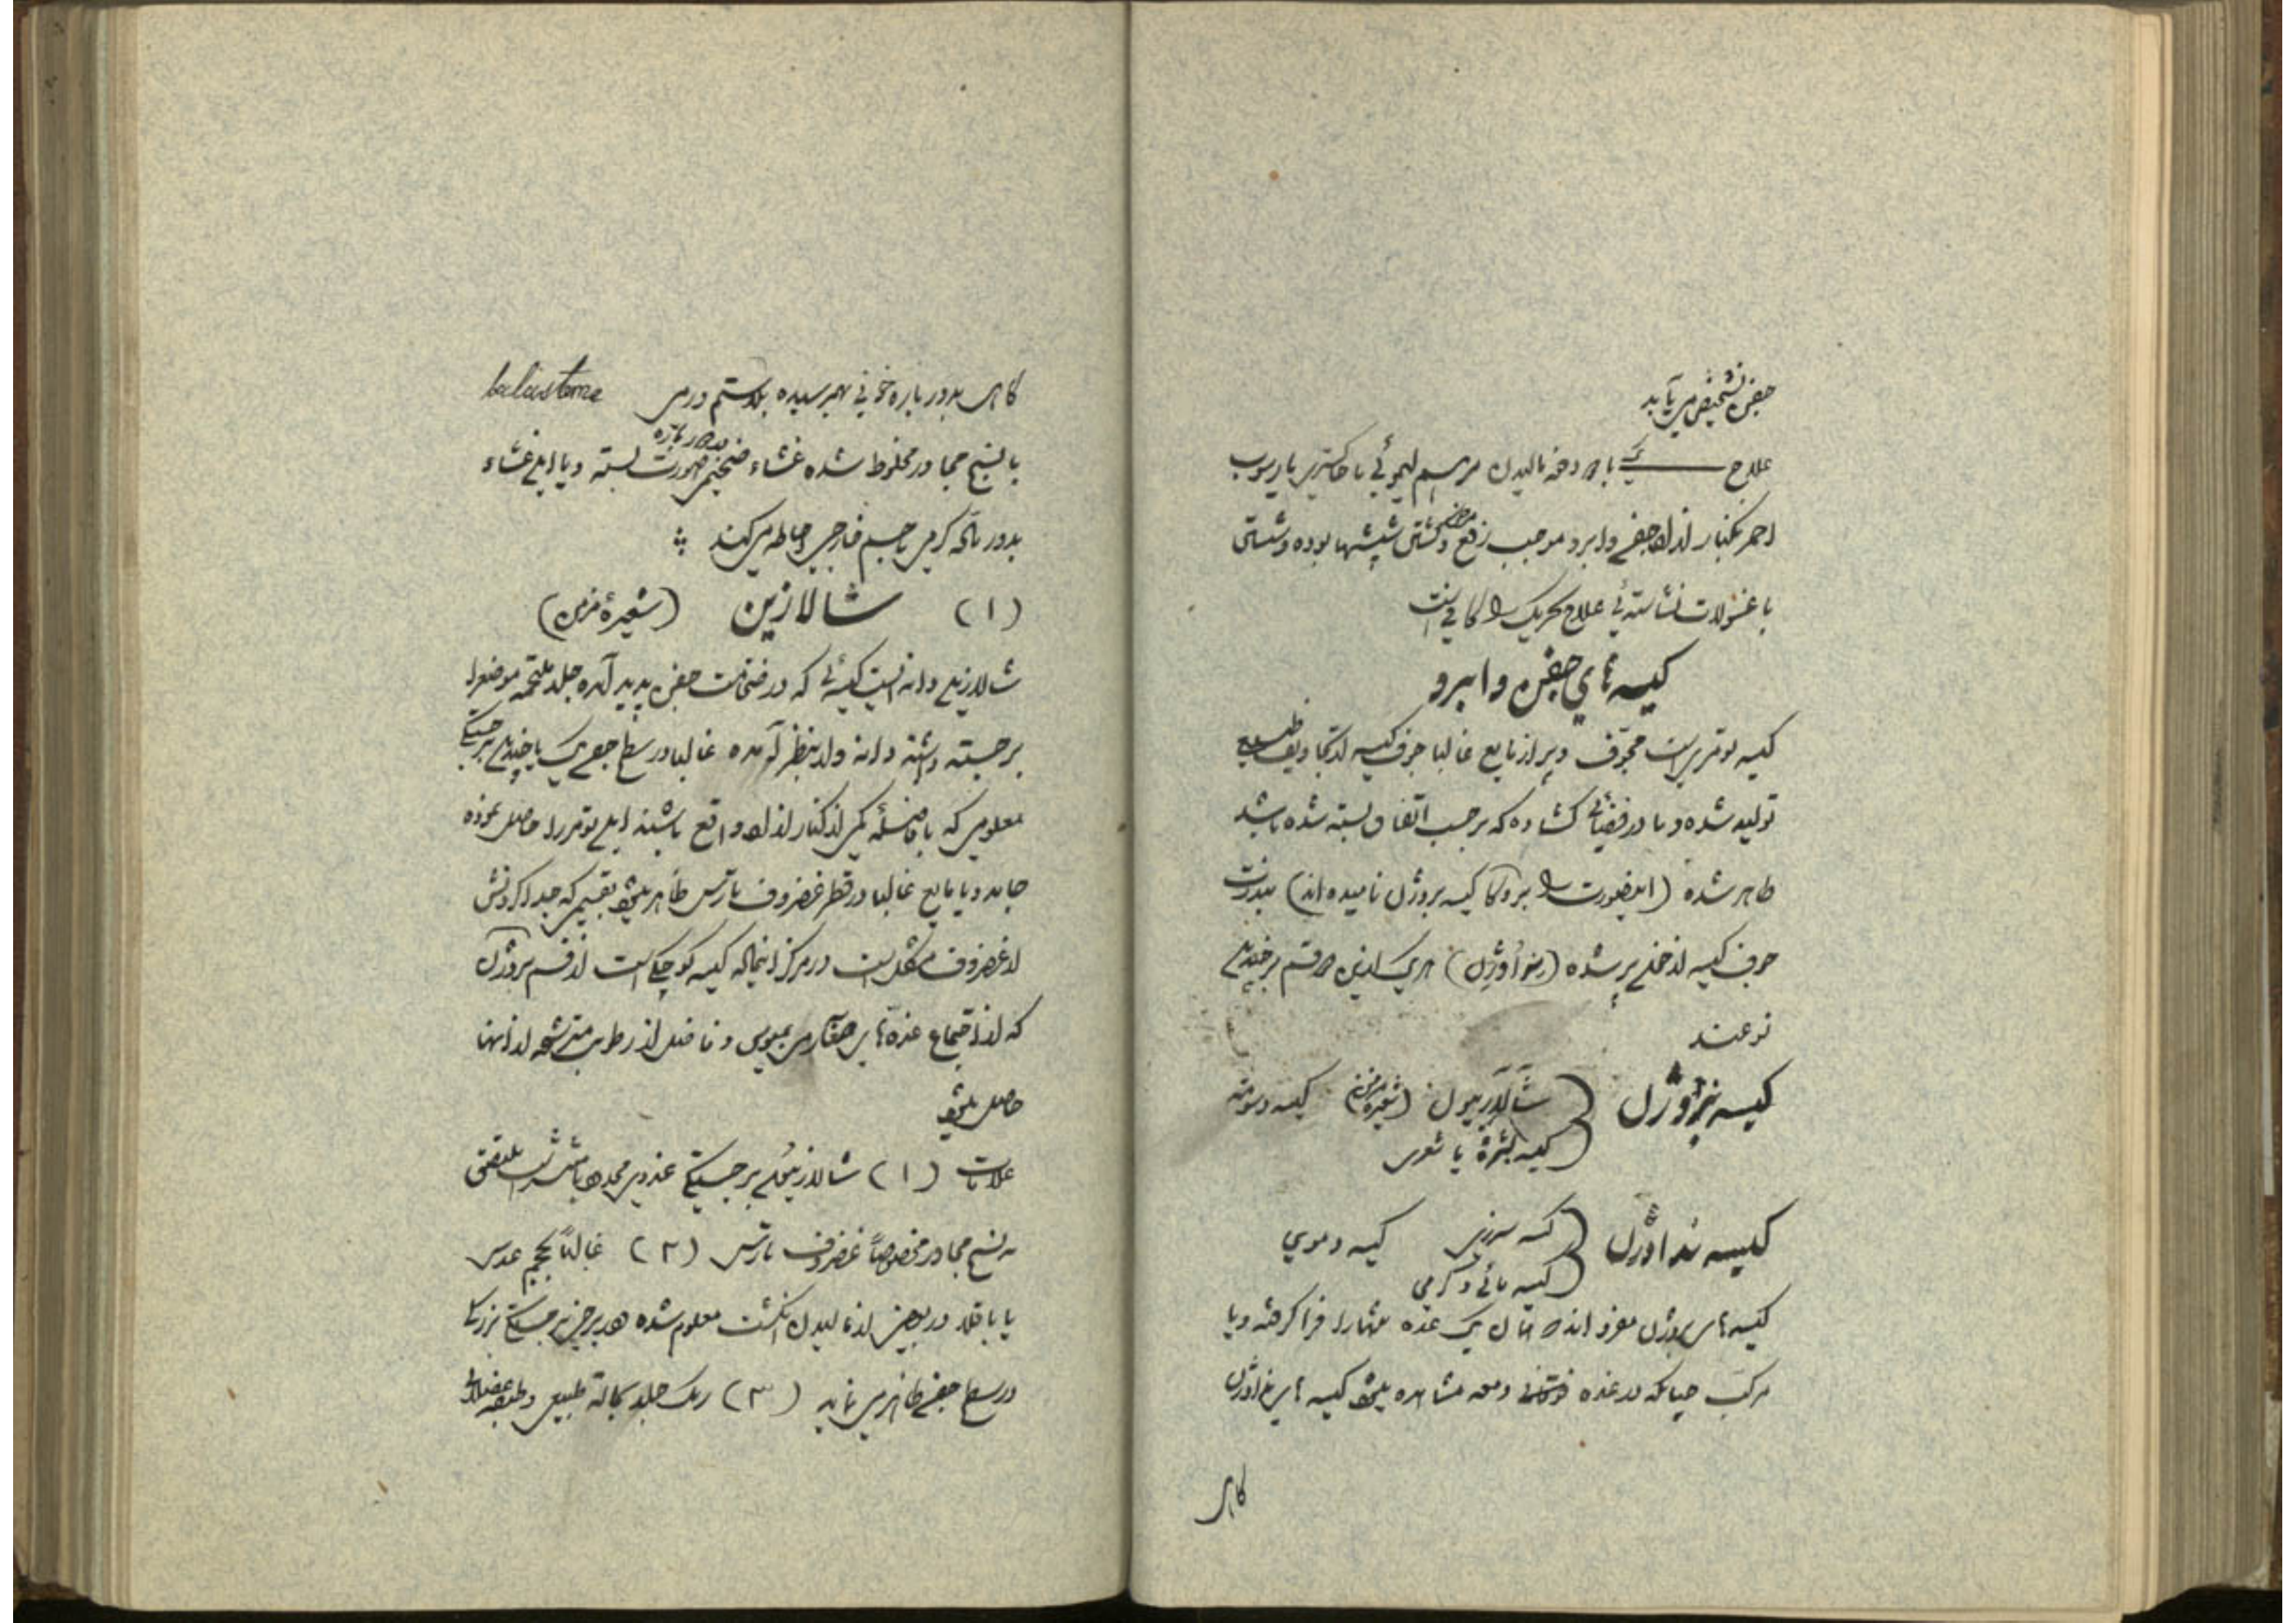 جفن تشخیص می یابد
علاج یک یا دو دفعه مالیدن مرهم لیموئی یا خاکستری یا رسوب
احمر بکنار آزاد جفن و ابرو موجب رفع مرض و کشتن شپشها بوده و شستن
با غسولات نشاسته ئی علاج تحریک را کافی است
کیسه های جفن و ابرو
کیسه تومریست مجوف و پر از مایع غالبا جوف کیسه از تجاویف طبیعی
تولید شده و یا در فضائی گشاده که بر حسب اتفاق بسته شده باشد
ظاهر شده (اینصورت را بروکا کیسه پروژن نامیده اند) بندرت
جوف کیسه از خلی پر شده هریک ازین دو قسم بر چندین
نوعند
کیسه پروژن شالازیون (شعیره مزمن) کیسه دسومته
کیسه بشره یا شعری
کیسه نداوژن کیسه سرزی کیسه دموی
کیسه مائی و کرمی
کیسه های پروژن مفرد اند و مثال یک غده تنها را فرا گرفته و یا
مرکب چنانکه در غده فوقانی دمعه مشاهده میشود کیسه های نداوژن
گاهی
گاهی بدور پاره خونی بهمرسیده بلاستم ورمی balastome
با نسیج مجاور مخلوط شده غشاء ضخیمی بدور پاره صورت بسته و یا این غشاء
بدور تاکه کرمی یا جسم خارجی احاطه میکند
(۱) شالازین (شعیرۀ مزمن)
شالازین دانه ایست کیسه ئی که در ضخامت جفن پدید آمده جلد ملتحمه موضع را
برجسته داشته دانه وار بنظر آمده غالبا در سطح جفن یک یا چندین برجستگی
معلومی که بفاصلۀ کمی از کنار آزاد واقع باشند این تومر را حاصل نموده
جامد و یا مایع غالبا در قطر غضروف تارس ظاهر میشود بقسمی که جدا کردنش
از غضروف مشکل است در مرکز اینحاله کیسه کوچکی است از قسم پروژن
که از اجتماع غده های میبومی و فاضل از رطوبت مترشحه از آنها
حاصل میشود
علامات (۱) شالازیون برجستگی غدوی محدود یا منتشر است ملتصق
به نسیج مجاور مخصوصاً غضروف تارس (۲) غالباً بحجم عدس
یا باقلا در بعضی از مالیدن انگشت معلوم شده در برخی برجستگی بزرگی
در سطح جفن ظاهر می نماید (۳) رنگ جلد بحالة طبیعی و طبقه عضلانی